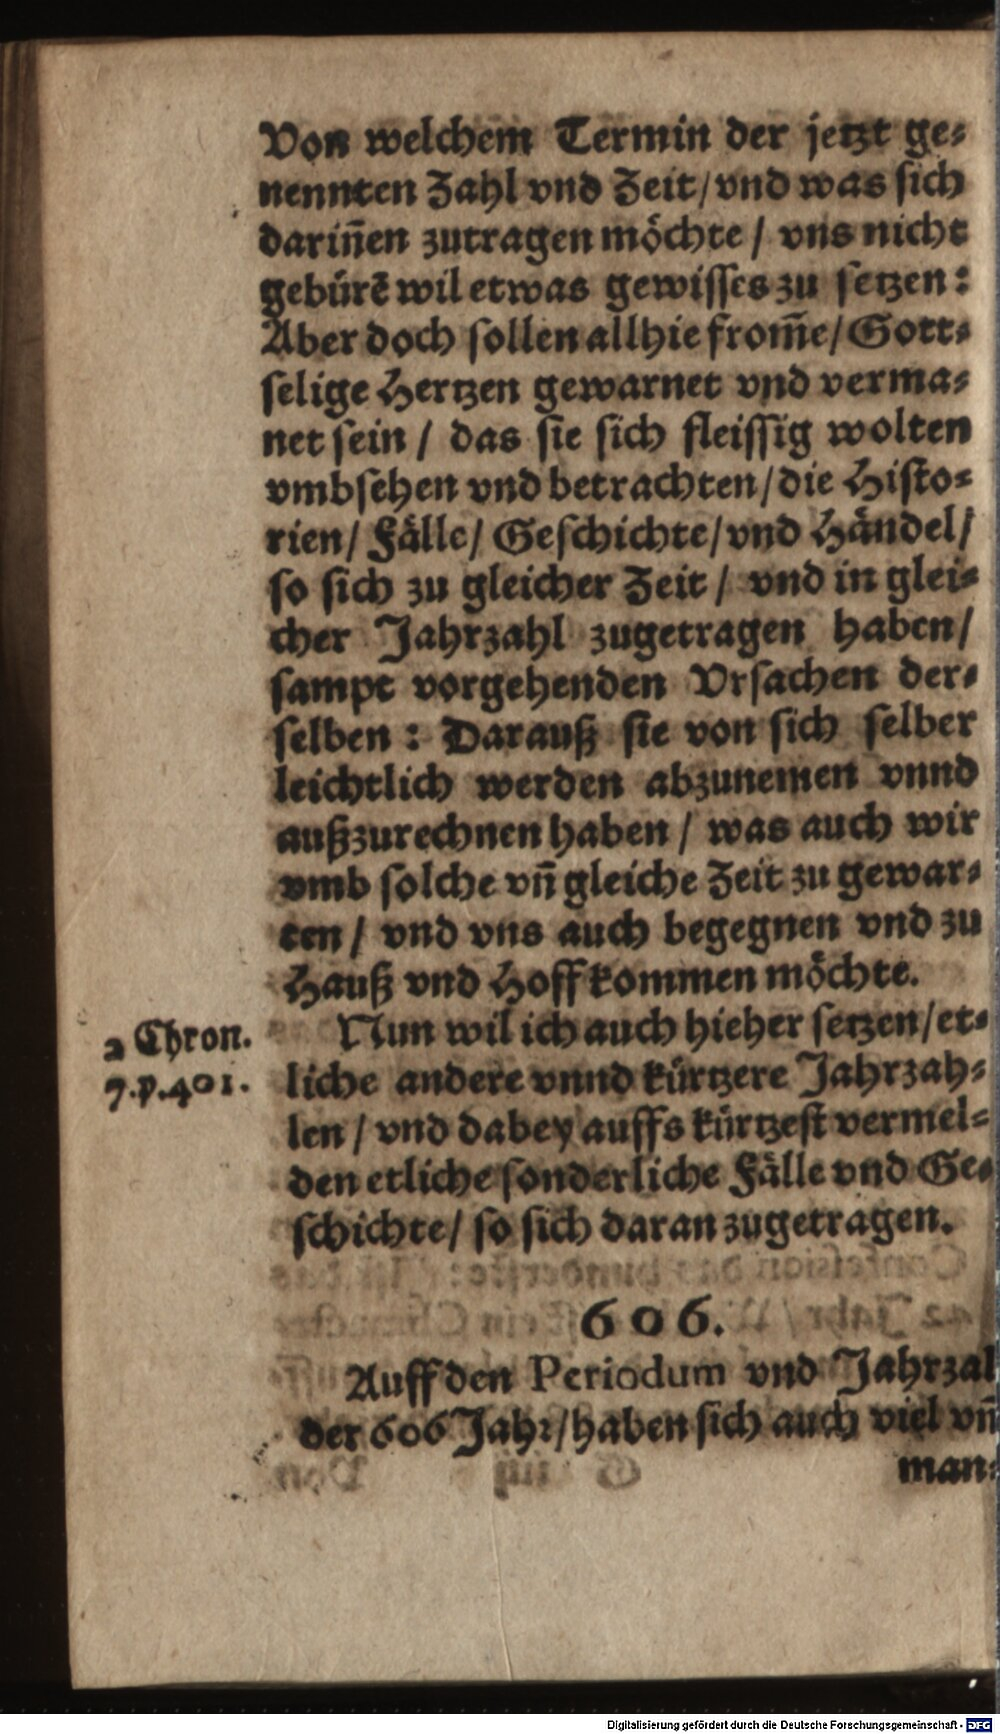 Von welchem Termin der jetzt ge⸗
nennten Zahl vnd Zeit/vnd was sich
dariñen zutragen möchte / vns nicht
gebürẽ wil etwas gewisses zu setzen:
Aber doch sollen allhie from̃e/Gott⸗
selige Hertzen gewarnet vnd verma⸗
net sein / das sie sich fleissig wolten
vmbsehen vnd betrachten/die Histo⸗
rien/ Fälle/ Geschichte/vnd Händel/
so sich zu gleicher Zeit / vnd in glei⸗
cher Jahrzahl zugetragen haben/
sampt vorgehenden Vrsachen der⸗
selben: Darauß sie von sich selber
leichtlich werden abzunemen vnnd
außzurechnen haben / was auch wir
vmb solche vñ gleiche Zeit zu gewar⸗
ten / vnd vns auch begegnen vnd zu
Hauß vnd Hoff kommen möchte.
Nun wil ich auch hieher setzen/et⸗
2 Chron.
liche andere vnnd kürtzere Jahrzah⸗
7.p.401.
len / vnd dabey auffs kürtzest vermel⸗
den etliche sonderliche Fälle vnd Ge⸗
schichte/ so sich daran zugetragen.
606.
Auff den Periodum vnd Jahrzal
der 606 Jahr/haben sich auch viel vñ
man⸗
Digitalisierung gefördert durch die Deutsche Forschungsgemeinschaft - DFG